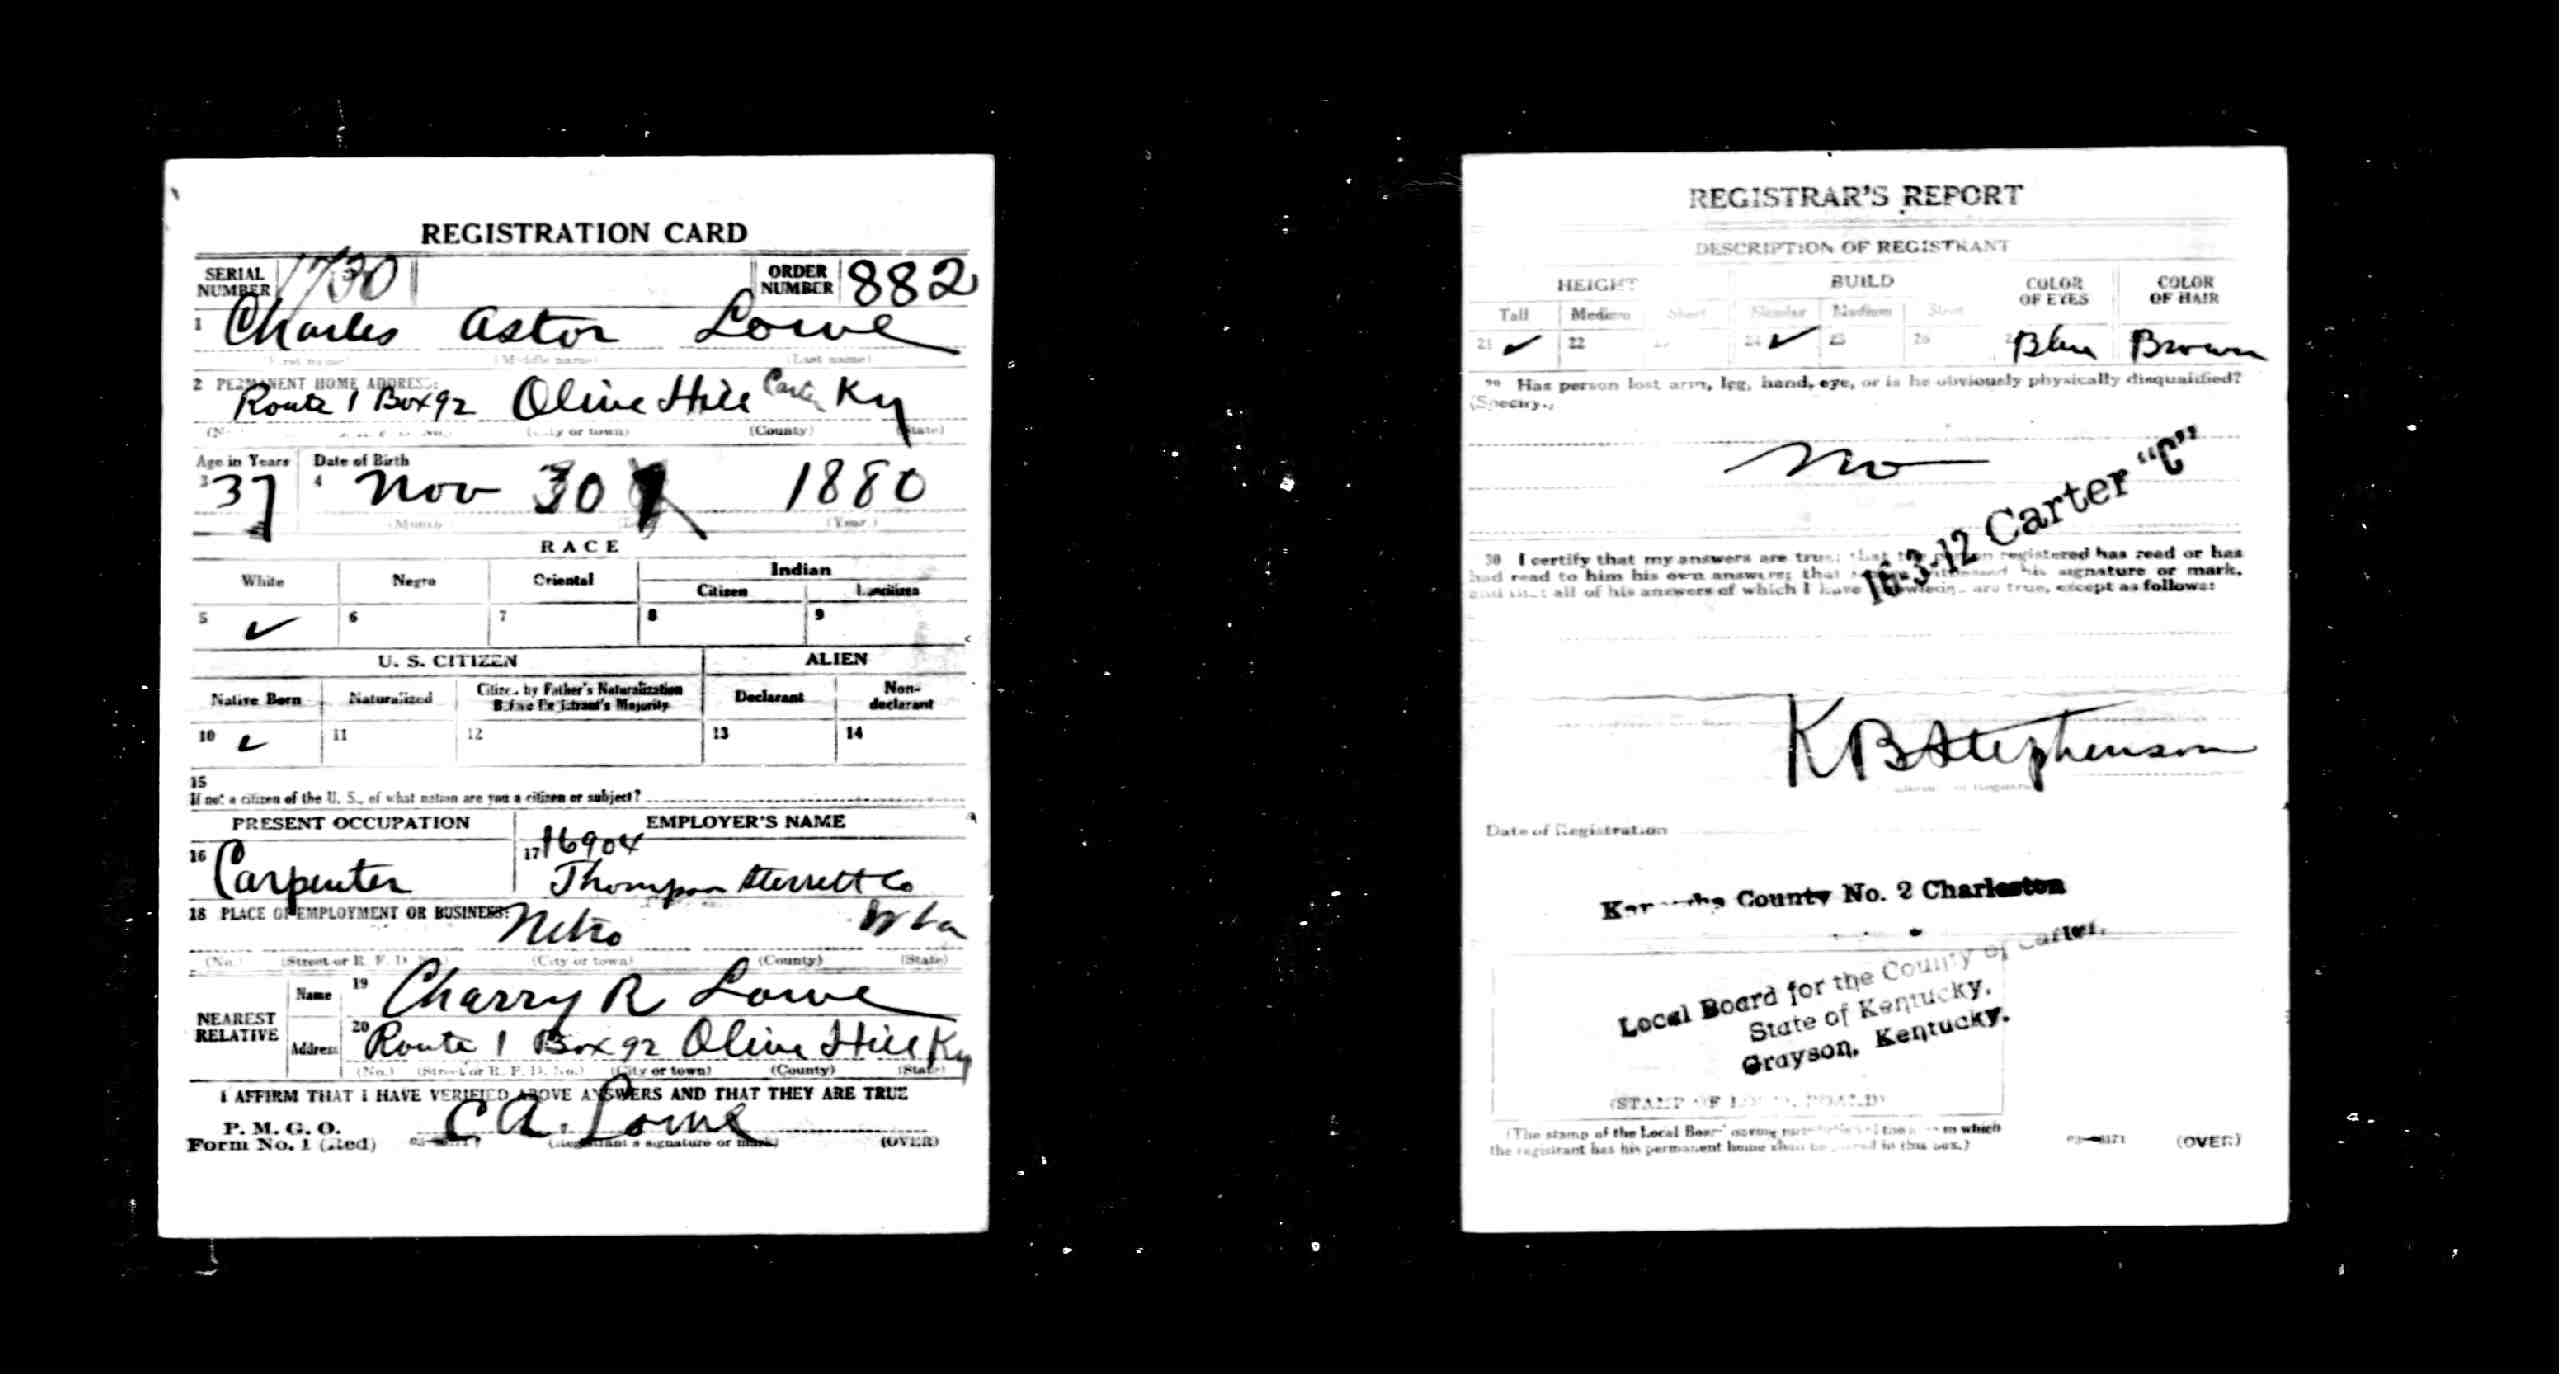 REGISTRATION CARD
SERIAL NUMBER 1730 ORDER NUMBER 882
1 Charles Astor Lowe
(Middle name) (Last name)
2 PERMANENT HOME ADDRESS:
Route 1 Box 92 Olive Hill Carter Ky
(City or town) (County) (State)
Age in Years Date of Birth
3 37 4 Nov 30 1880
(Month) (Year)
RACE
White Negro Oriental Indian
Citizen
5 ✓ 6 7 8 9
U. S. CITIZEN ALIEN
Native Born Naturalized Citizen by Father's Naturalization Before Registrant's Majority Declarant Non-declarant
10 ✓ 11 12 13 14
15
If not a citizen of the U. S., of what nation are you a citizen or subject?
PRESENT OCCUPATION EMPLOYER'S NAME
16 Carpenter 17 16904
Thompson Sterrett Co
18 PLACE OF EMPLOYMENT OR BUSINESS:
Nitro W Va
(No.) (Street or R. F. D. No.) (City or town) (County) (State)
NEAREST RELATIVE
Name 19 Charry R Lowe
Address 20 Route 1 Box 92 Olive Hill Ky
(No.) (Street or R. F. D. No.) (City or town) (County) (State)
I AFFIRM THAT I HAVE VERIFIED ABOVE ANSWERS AND THAT THEY ARE TRUE
P. M. G. O.
Form No. 1 (Red) C A. Lowe
(Registrant's signature or mark) (OVER)
REGISTRAR'S REPORT
DESCRIPTION OF REGISTRANT
HEIGHT BUILD COLOR OF EYES COLOR OF HAIR
Tall Medium Short Slender Medium Stout
21 ✓ 22 23 24 ✓ 25 26 Blue Brown
29 Has person lost arm, leg, hand, eye, or is he obviously physically disqualified?
(Specify.)
No
16-3-12 Carter "C"
30 I certify that my answers are true; that the person registered has read or has
had read to him his own answers; that his signature or mark,
and that all of his answers of which I have knowledge are true, except as follows:
K B Stephenson
Date of Registration
Kanawha County No. 2 Charleston
Local Board for the County of Carter,
State of Kentucky,
Grayson, Kentucky.
(STAMP OF LOCAL BOARD)
(The stamp of the Local Board having in which
the registrant has his permanent home shall be placed in this box.)
(OVER)